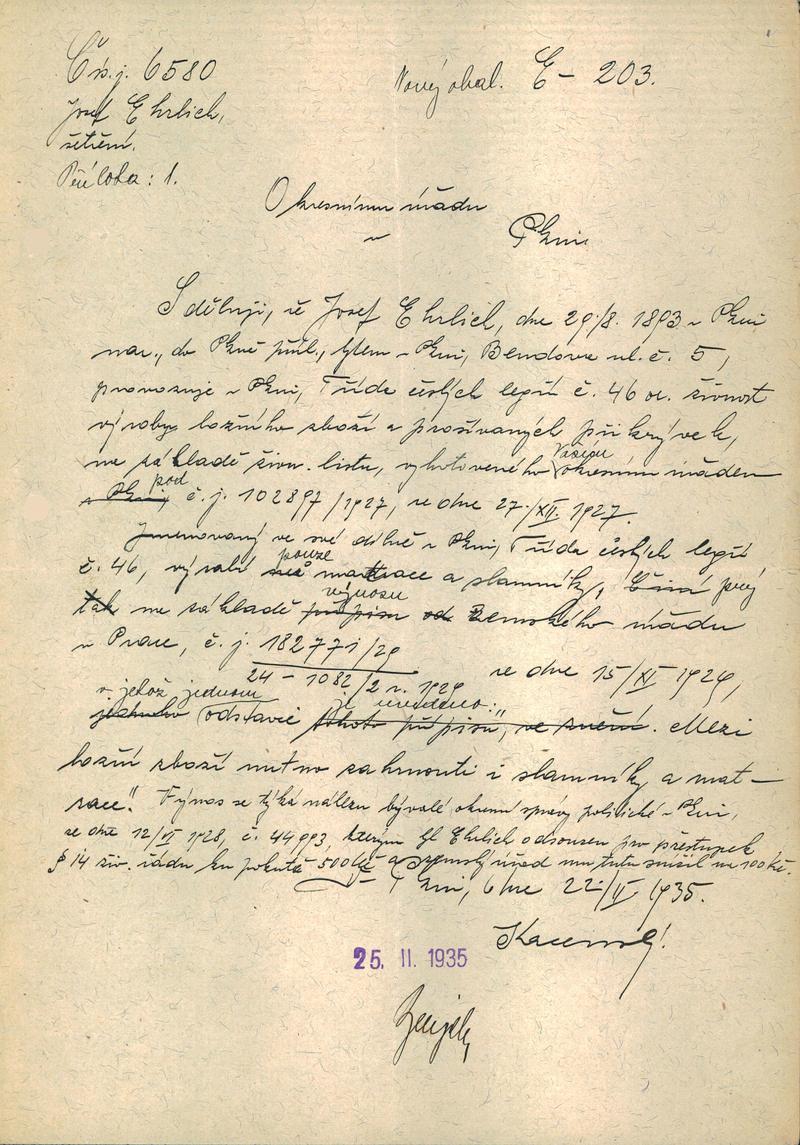 Čís. j. 6580
Nový obal. E - 203.
Josef Ehrlich,
šetření.
Příloha: 1.
Okresnímu úřadu
v Plzni
Sděluji, že Josef Ehrlich, dne 29/8. 1893 v Plzni
nar., do Plzně přísl., bytem v Plzni, Bendova ul. č. 5,
provozuje v Plzni, Třída českých legií č. 46 or. živnost
výroby ložního zboží a prošívaných přikrývek,
na základě živn. listu, vyhotoveného Vaším okresním úřadem
v Plzni, pod č. j. 102897/1927, ze dne 27./XII. 1927.
Jmenovaný ve své dílně v Plzni, Třída českých legií
č. 46, vyrábí pouze matrace a slamníky, činí prý
tak na základě přípisu výnosu od Zemského úřadu
v Praze, č. j. 182771/29
24 - 1082/2 r. 1929 ze dne 15/XI 1929,
v jehož jednom odstavci je uvedeno: „
tohoto přípisu, ve znění. Mezi
ložní zboží nutno zahrnouti i slamníky a mat-
race". Výnos se týká nálezu bývalé okresní správy politické v Plzni,
ze dne 12/VI 1928, č. 44993, kterým byl Ehrlich odsouzen pro přestupek
§ 14 živ. řádu ku pokutě 500 Kč a zemský úřad mu tuto snížil na 100 Kč.
V Plzni, dne 22/II 1935.
25. II. 1935